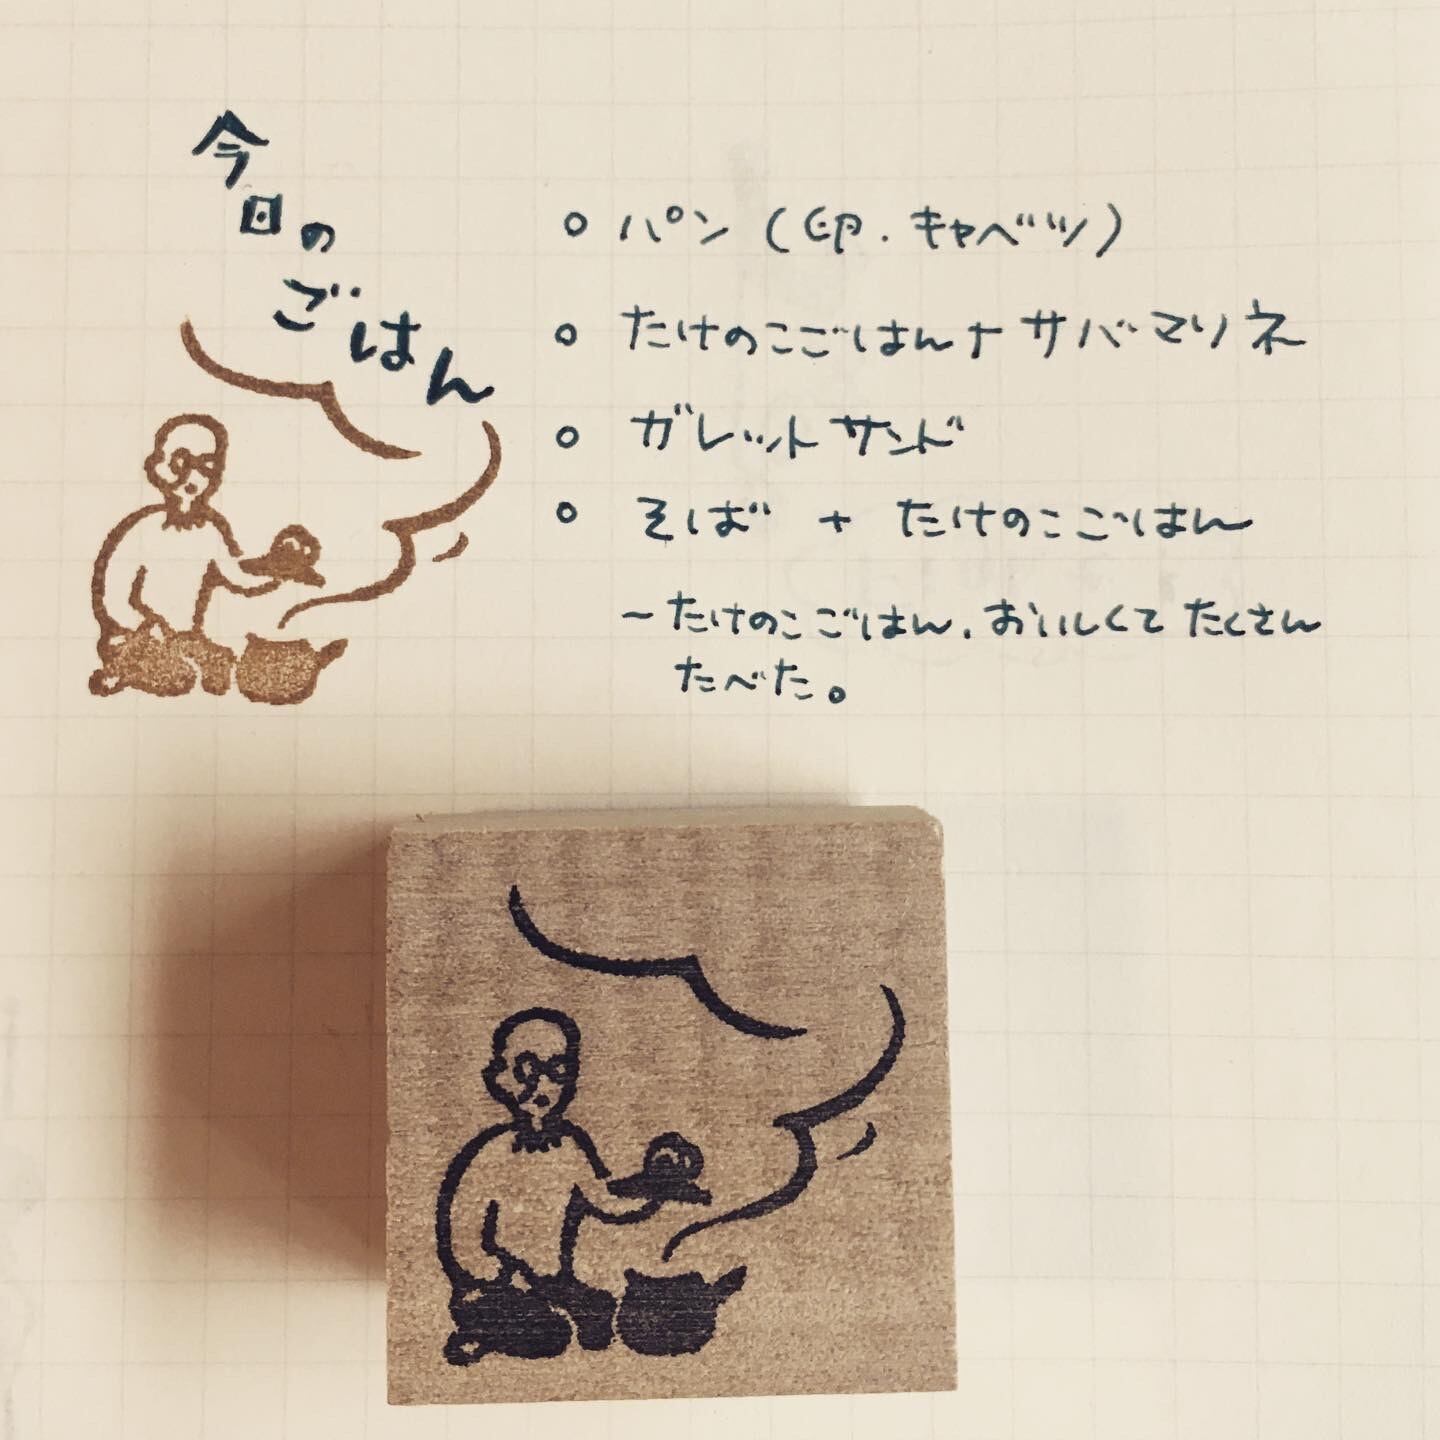 今日のごはん
○ パン（卵．キャベツ）
○ たけのこごはん+サバマリネ
○ ガレットサンド
○ そば + たけのこごはん
～たけのこごはん、おいしくてたくさん
たべた。